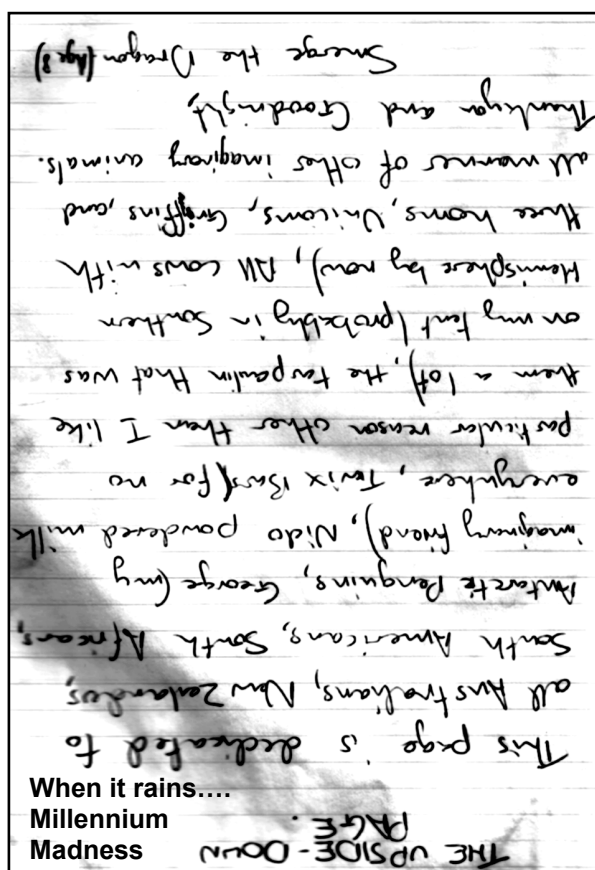 THE UPSIDE-DOWN
PAGE.
This page is dedicated to
all Australians, New Zealanders,
South Americans, South Africans,
Antarctic Penguins, George (my
imaginary friend), Nido powdered milk
everywhere, Twix Bars (for no
particular reason other than I like
them a lot), the tarpaulin that was
on my tent (probably in Southern
Hemisphere by now), All cows with
three horns, Unicorns, Griffins, and
all manner of other imaginary animals.
Thankyou and Goodnight,
Smerge the Dragon (Age 8)
When it rains....
Millennium
Madness